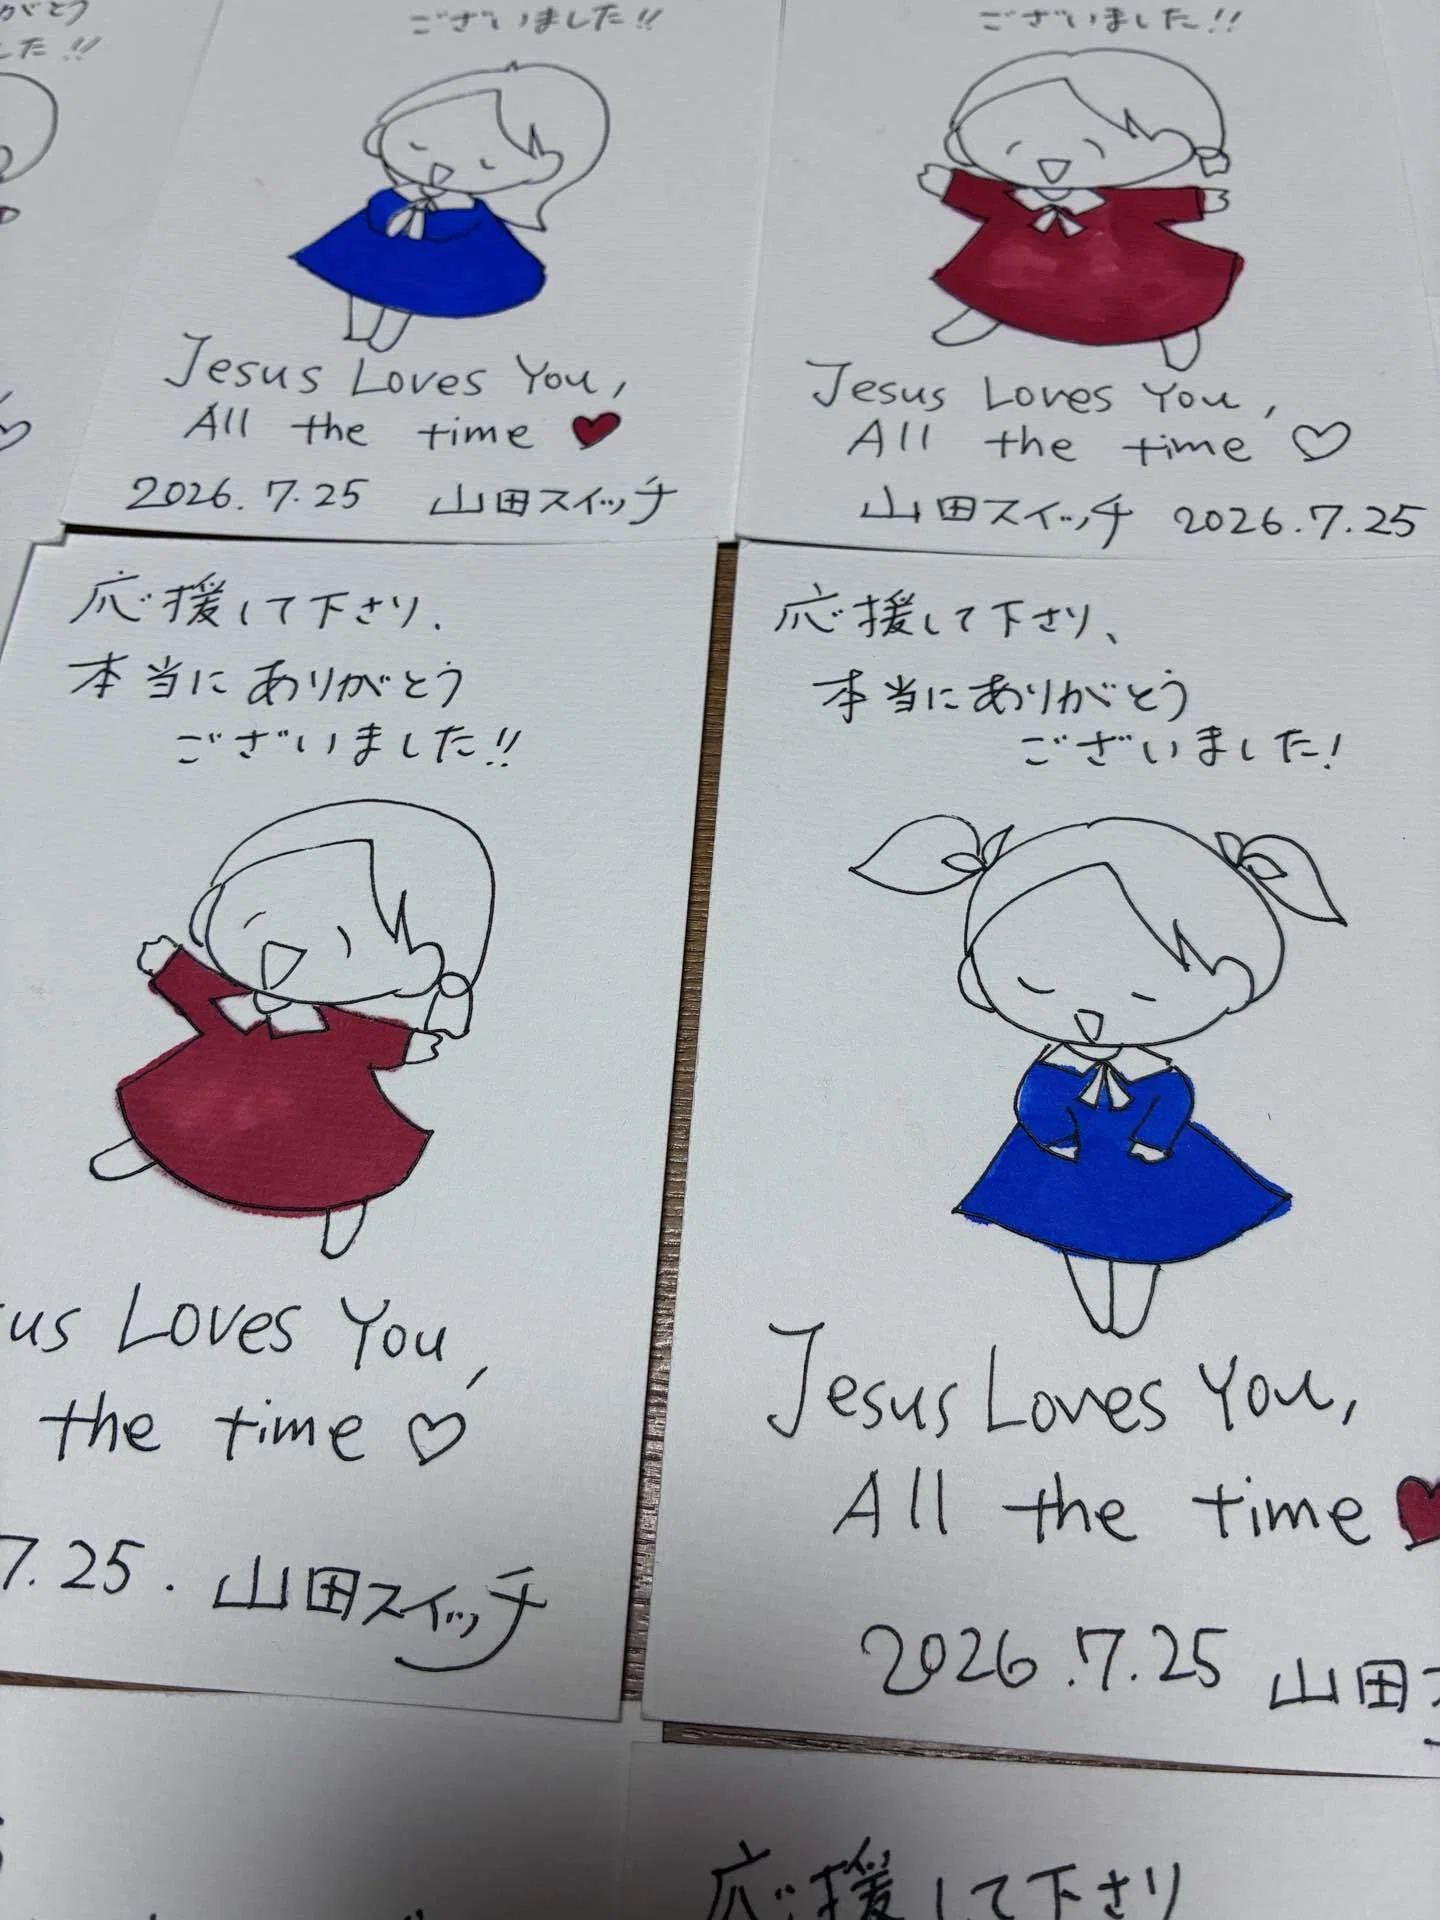 がとう
した!!
ございました!!
Jesus Loves You,
All the time
2026.7.25 山田スイッチ
ございました!!
Jesus Loves You,
All the time
山田スイッチ 2026.7.25
応援して下さり.
本当にありがとう
ございました!!
sus Loves You,
the time
7.25. 山田スイッチ
応援して下さり、
本当にありがとう
ございました!
Jesus Loves You,
All the time
2026.7.25 山田ス
応援して下さり